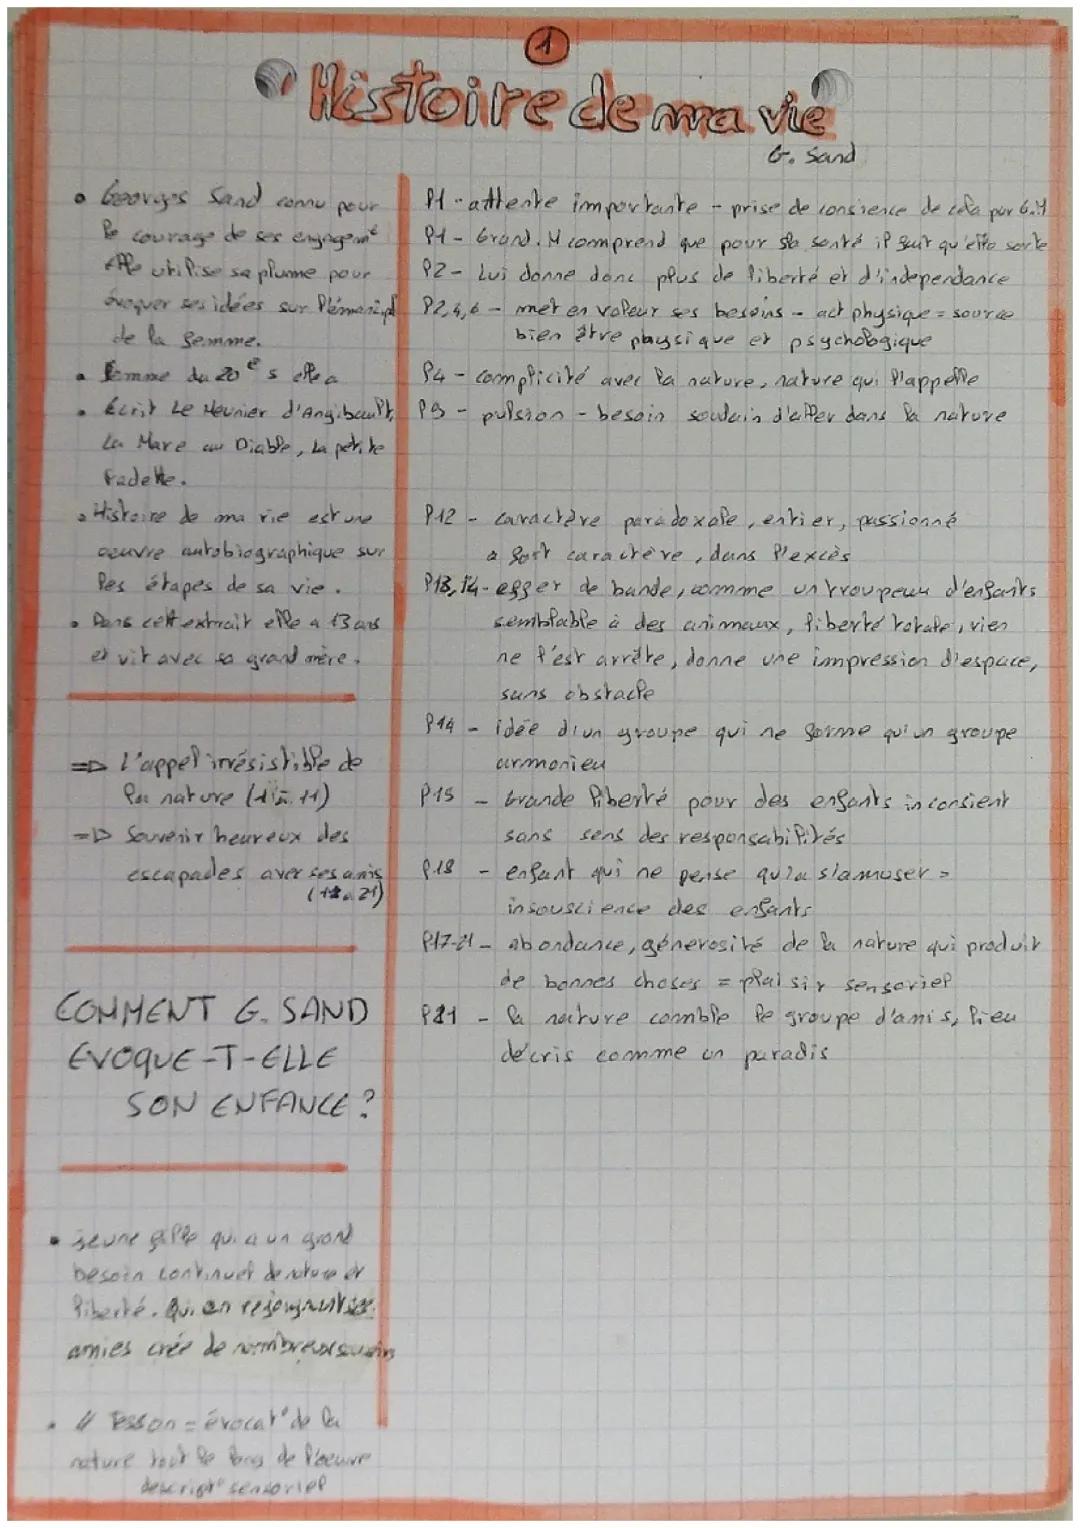 1
Histoire de ma vie
G. Sand
• Georges Sand connu pour
le courage de ses engagemt
elle utilise sa plume pour
évoquer ses idées sur l'émancipat
de la femme.
• Femme du 20e s elle a
• Écrit Le Meunier d'Angibault,
La Mare au Diable, La petite
Fadette.
• Histoire de ma vie est une
oeuvre autobiographique sur
les étapes de sa vie.
• Dans cett extrait elle a 13 ans
et vit avec sa grand mère.
=> L'appel irrésistible de
la nature (1 à 11)
=> Souvenir heureux des
escapades aver ses amis
(12 a 21)
COMMENT G. SAND
EVOQUE-T-ELLE
SON ENFANCE ?
• jeune fille qui a un grand
besoin continuel de nature et
liberté. Qui en rejoignant ses
amies crée de nombreux souvenirs
• // Tesson = évocat° de la
nature tout le long de l'oeuvre
descript° sensoriel
P1 - attente importante - prise de consience de cela par G.M
P1 - Grand. M comprend que pour sa santé il faut qu'elle sorte
P2 - Lui donne donc plus de liberté et d'independance
P2,4,6 - met en valeur ses besoins - act physique = source
bien être physique et psychologique
P4 - complicité avec la nature, nature qui l'appelle
P9 - pulsion - besoin soudain d'aller dans la nature
P12 - caractère paradoxale, entier, passionné
a fort caractère, dans l'excès
P13,14 - effer de bande, comme un troupeux d'enfants
semblable à des animaux, liberté totale, rien
ne l'est arrête, donne une impression d'espace,
sans obstacle
P14 - idée d'un groupe qui ne forme qu'un groupe
armonieu
P15 - Grande liberté pour des enfants inconsient
sans sens des responsabilités
P18 - enfant qui ne pense qu'a s'amuser =
insouscience des enfants
P17-21 - abondance, génerosité de la nature qui produit
de bonnes choses = plaisir sensoriel
P21 - la nature comble le groupe d'amis, lieu
décris comme un paradis